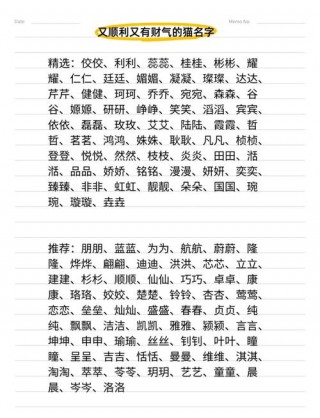 Date
Memo No.
又顺利又有财气的猫名字
精选：佼佼、利利、蕊蕊、桂桂、彬彬、耀
耀、仁仁、廷廷、媚媚、凝凝、璨璨、达达、
芹芹、健健、珂珂、乔乔、宛宛、森森、谷
谷、嫄嫄、研研、峥峥、笑笑、滔滔、宾宾、
依依、磊磊、玫玫、艾艾、陆陆、霞霞、哲
哲、茗茗、鸿鸿、姝姝、耿耿、凡凡、桢桢、
登登、悦悦、然然、枝枝、炎炎、田田、湉
湉、品品、娇娇、铭铭、漫漫、妍妍、奕奕、
臻臻、非非、虹虹、靓靓、朵朵、国国、琬
琬、璇璇、垚垚
推荐：朋朋、蓝蓝、为为、航航、蔚蔚、隆
隆、烨烨、翩翩、迪迪、洪洪、芯芯、立立、
建建、杉杉、顺顺、仙仙、巧巧、卓卓、康
康、珞珞、姣姣、楚楚、铃铃、杏杏、莺莺、
恋恋、垒垒、灿灿、盛盛、春春、贞贞、纯
纯、飘飘、洁洁、凯凯、雅雅、颍颍、言言、
坤坤、申申、瑜瑜、丝丝、钊钊、叶叶、瞳
瞳、呈呈、吉吉、恬恬、曼曼、维维、淇淇、
淘淘、苹苹、苓苓、玥玥、艺艺、童童、晨
晨、岑岑、洛洛